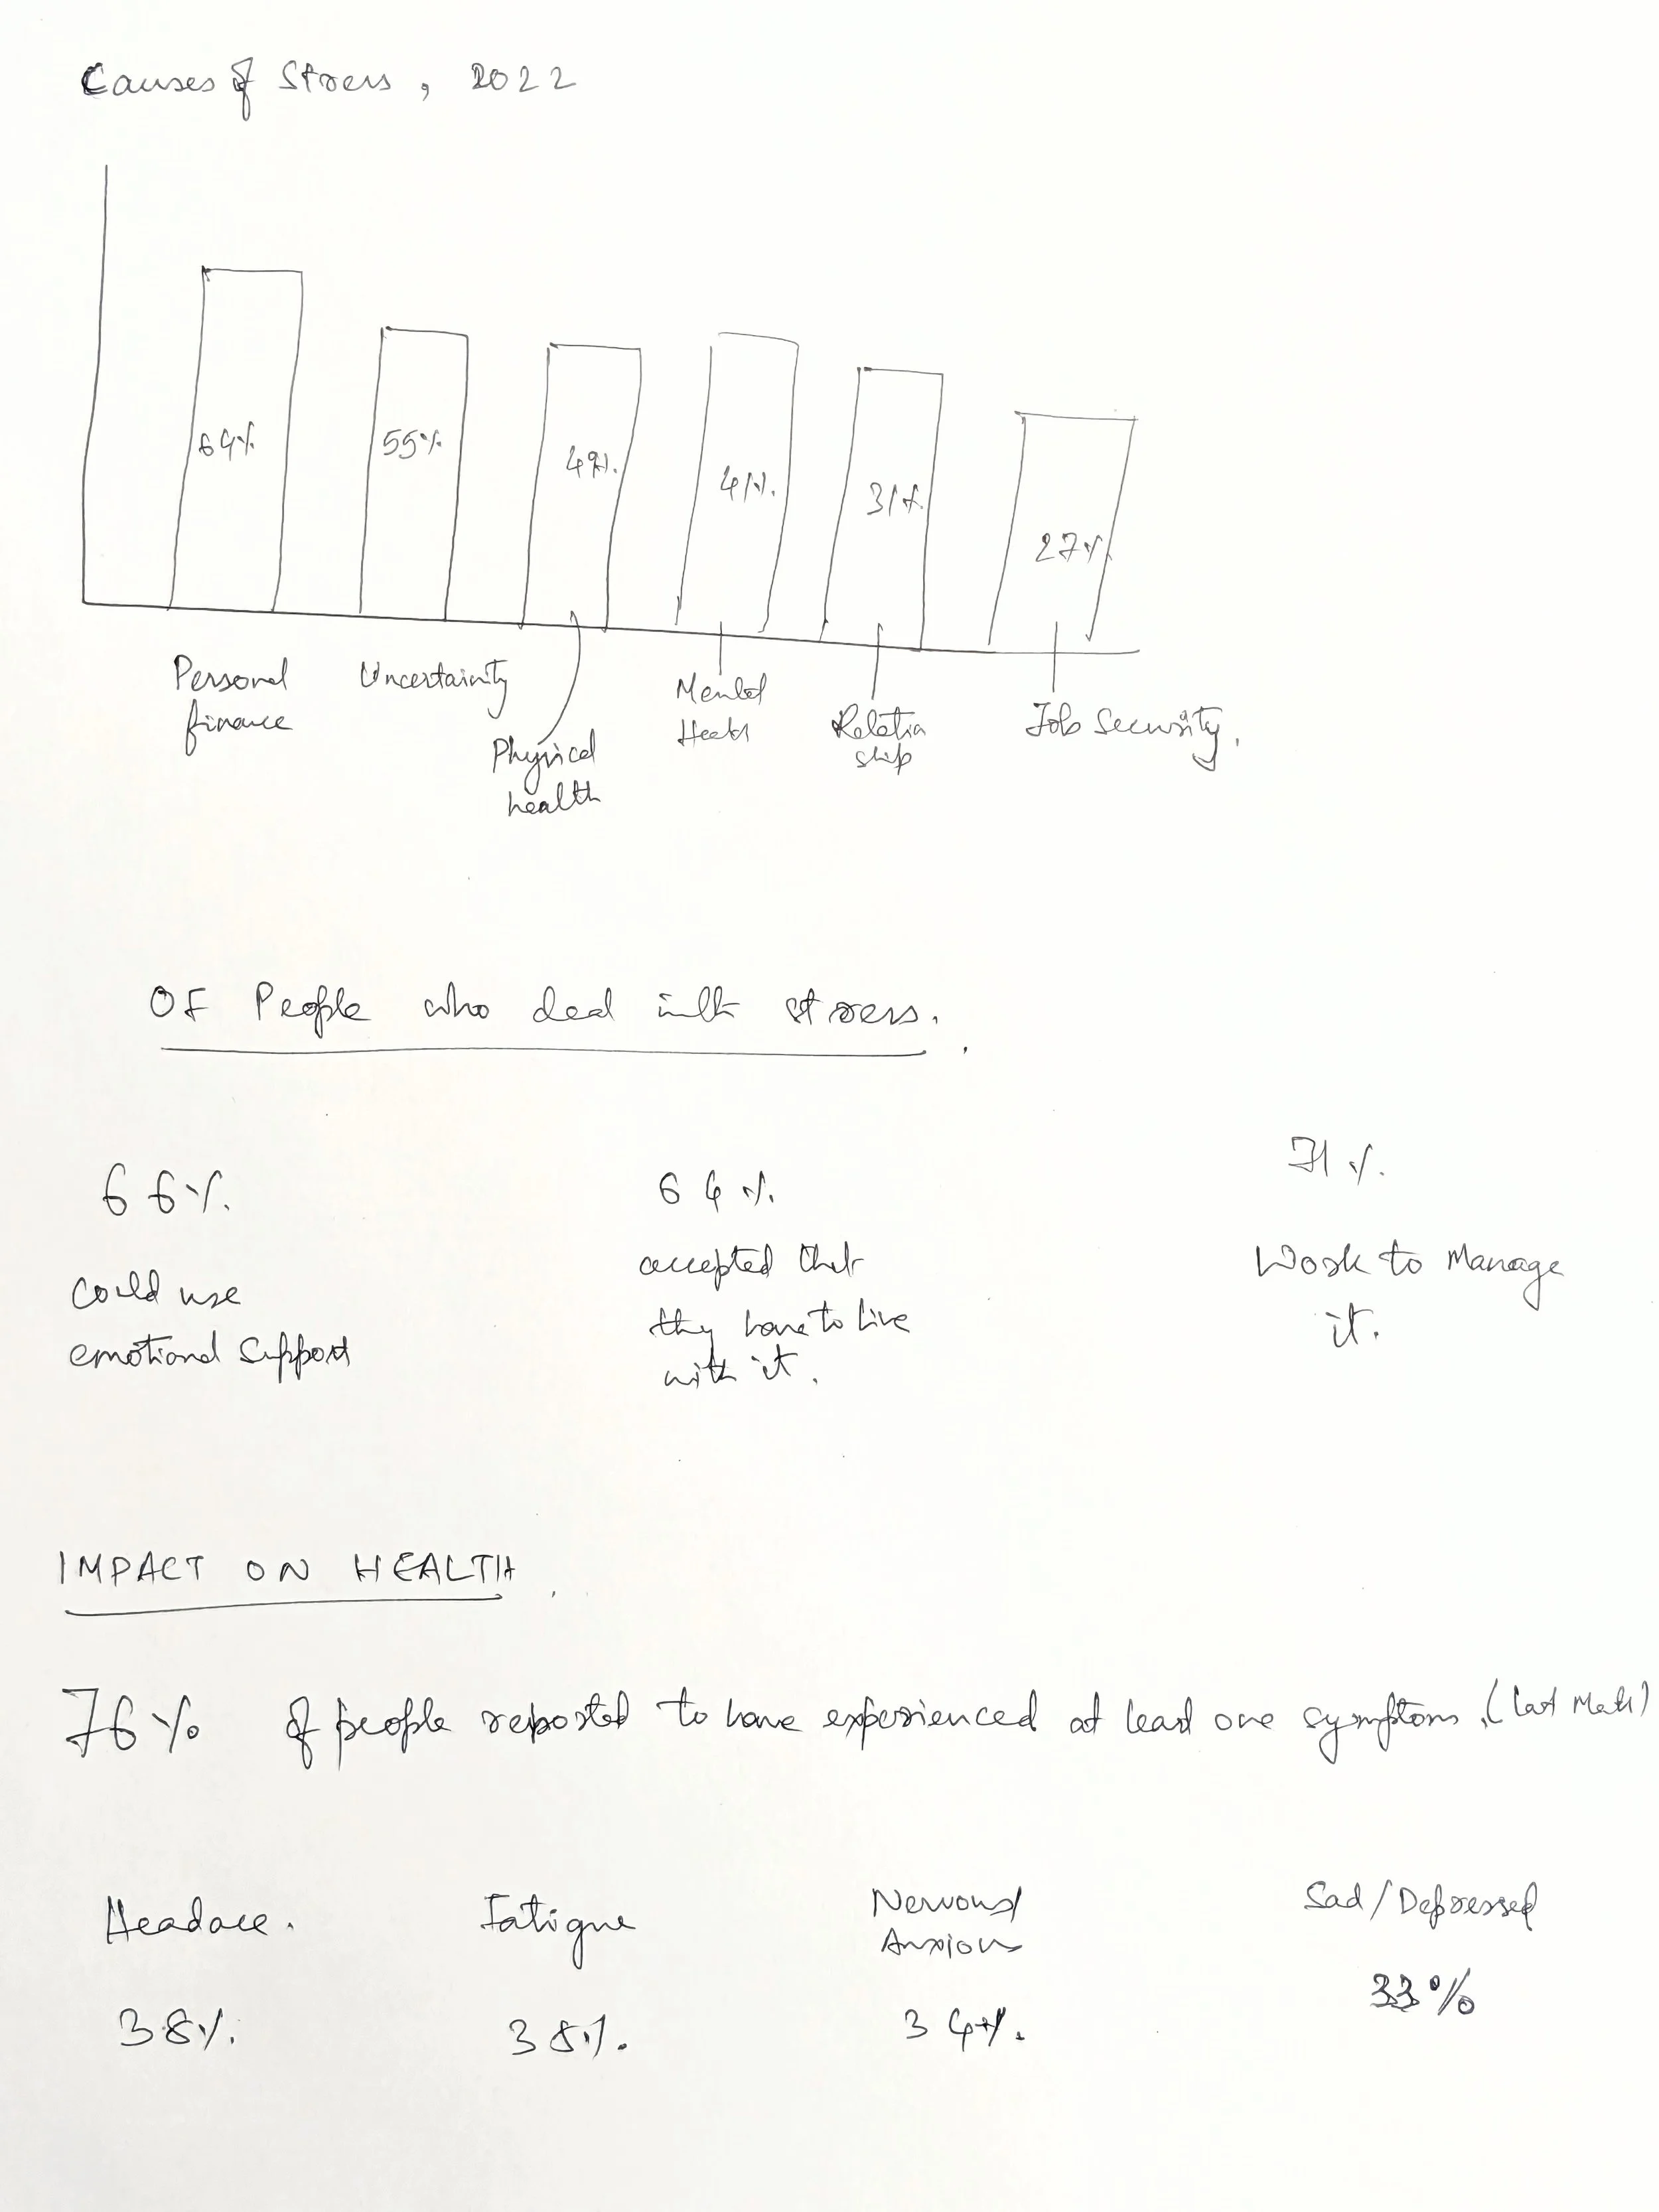 Causes of Stress, 2022
64%
55%
49%
41%
31%
27%
Personal
finance
Uncertainity
Physical
health
Mental
Health
Relation
ship
Job Security.
OF People who deal with stress.
66%.
could use
emotional support
64%.
accepted that
they have to live
with it.
71%.
Work to Manage
it.
IMPACT ON HEALTH.
76% of people reported to have experienced at least one symptom. (last )
Headace.
38%.
Fatigue
38%.
Nervous/
Anxious
34%.
Sad/Depressed
33%